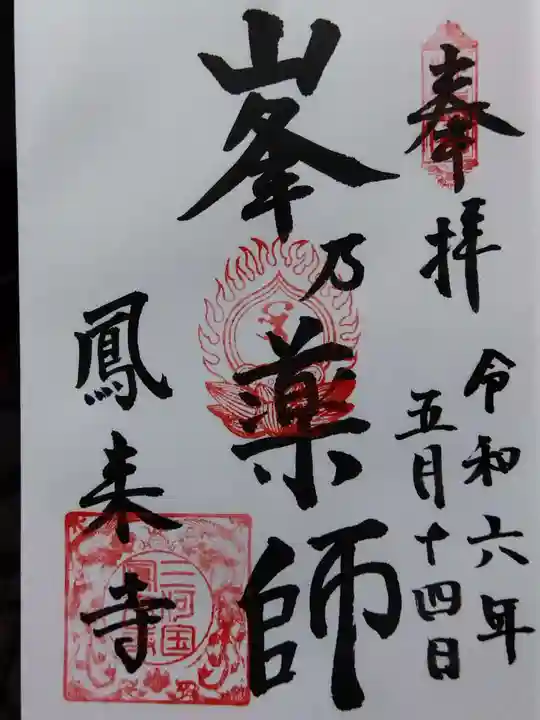 奉拝
令和六年
五月十四日
峯乃薬師
鳳来寺
三河国